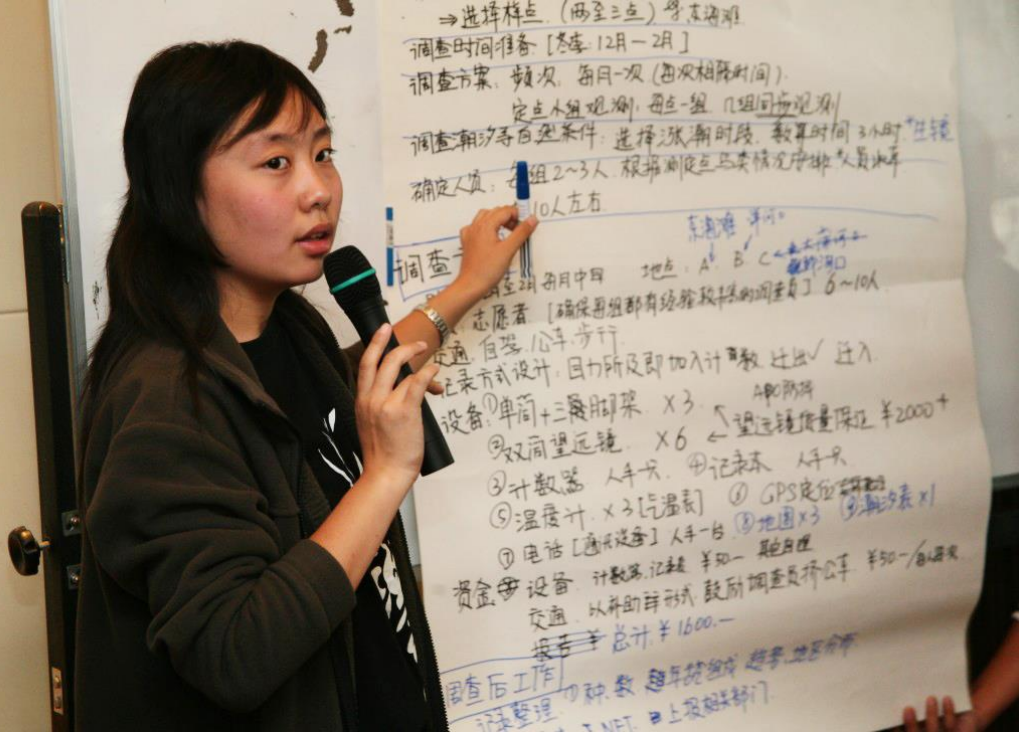 ⇒选择样点.(两至三点) 东海滩
调查时间准备 [冬季:12月—2月]
调查方案:频次:每月一次(每次相隔时间).
定点小组观测:每点一组 几组同步观测
调查潮汐等自然条件:选择涨潮时段. 数算时间 3小时
确定人员: 组2~3人.根据测定点鸟类情况 人员
10人左右
东海滩
调查
每月中旬 地点: A. B C
志愿者 [确保每组都有经验较丰富的调查员] 6~10人
交通.自驾.公车.步行
记录方式设计:目力所及即加入计 数 迁出√ 迁入
设备:①单筒+三角脚架 ×3.
②双筒望远镜 ×6 ← 望远镜质量保证 ¥2000+
③计数器 人手一只 ④记录本 人手一只
⑤温度计.×3[气温表] GPS定位
⑦电话[通讯设备]人手一台 ⑧地图×3 潮汐表×1
资金 设备 计数器.记录表 ¥50— 其他自理
交通.以补助 形式.鼓励调查员 公车.¥50—/
总计.¥1600.—
调查后工作 ①种.数 地区分布
记录整理 上报相关部门